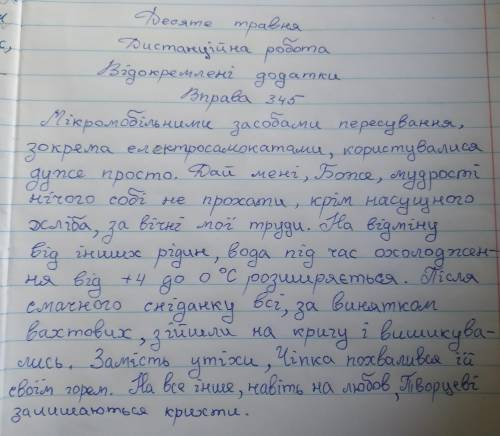 Десяте травня
Дистанційна робота
Відокремлені додатки
Вправа 345
Мікромобільними засобами пересування,
зокрема електросамокатами, користувалися
дуже просто. Дай мені, Боже, мудрості
нічого собі не прохати, крім насущного
хліба, за вічні мої труди. На відміну
від інших рідин, вода під час охолоджен-
ня від +4 до 0 °C розширяється. Після
смачного сніданку всі, за винятком
вахтових, зійшли на кригу і вишикува-
лись. Замість утіхи, Чіпка похвалився їй
своїм горем. На все інше, навіть на любов, Творцеві
залишаються крихти.